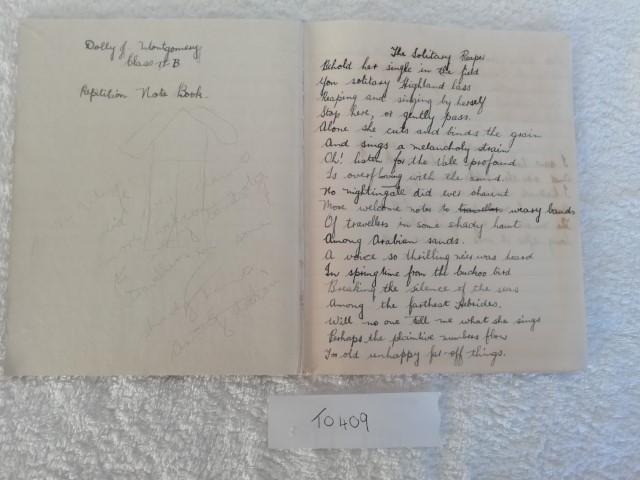 Dolly J. Montgomery
Class II B
Repitition Note Book.
The Solitary Reaper
Behold her single in the field
Yon solitary Highland lass
Reaping and singing by herself
Stop here, or gently pass.
Alone she cuts and binds the grain
And sings a melancholy strain
Oh! listen for the Vale profound
Is overflowing with the sound.
No nightingale did ever chaunt
More welcome notes to travellers weary bands
Of travellers in some shady haunt
Among Arabian sands.
A voice so thrilling ne'er was heard
In springtime from the cuckoo bird
Breaking the silence of the seas
Among the farthest Hebrides.
Will no one tell me what she sings
Perhaps the plaintive numbers flow
For old unhappy far-off things.
T0409